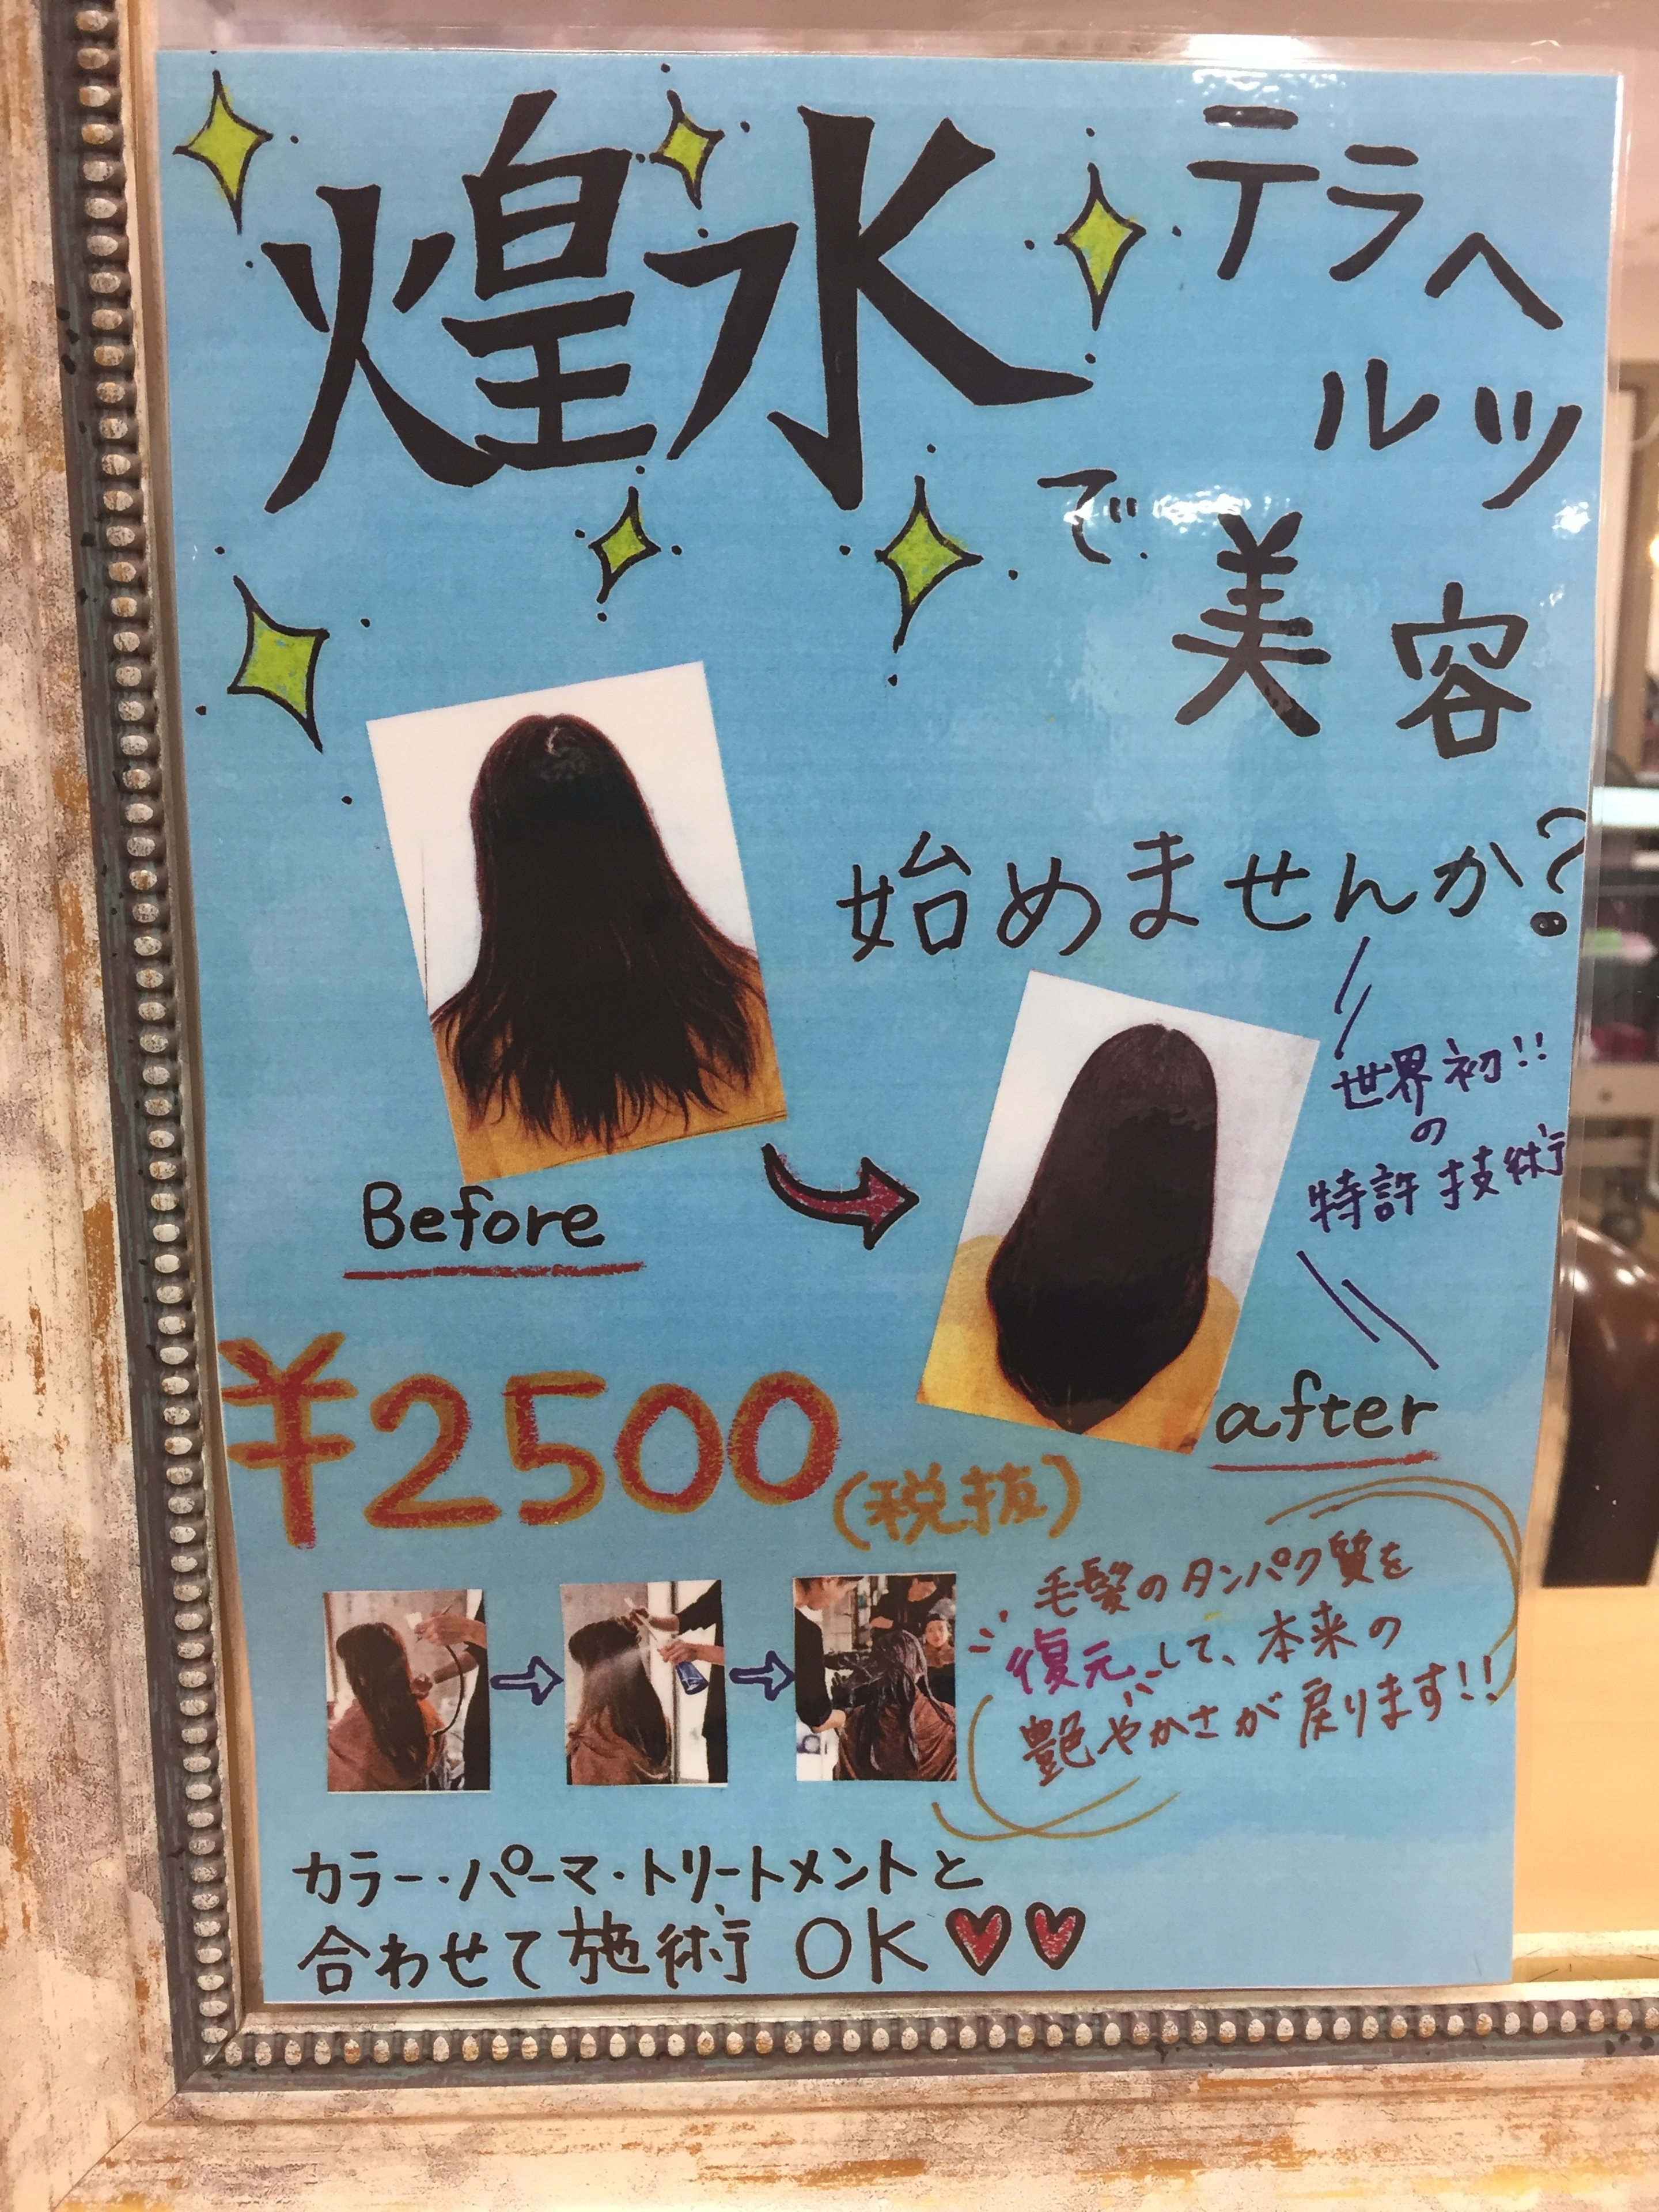 煌水
テラヘルツ
で美容
始めませんか?
世界初!!
の
特許技術
Before
after
¥2500(税抜)
毛髪のタンパク質を
復元して、本来の
艶やかさが戻ります!!
カラー・パーマ・トリートメントと
合わせて施術OK♥♥